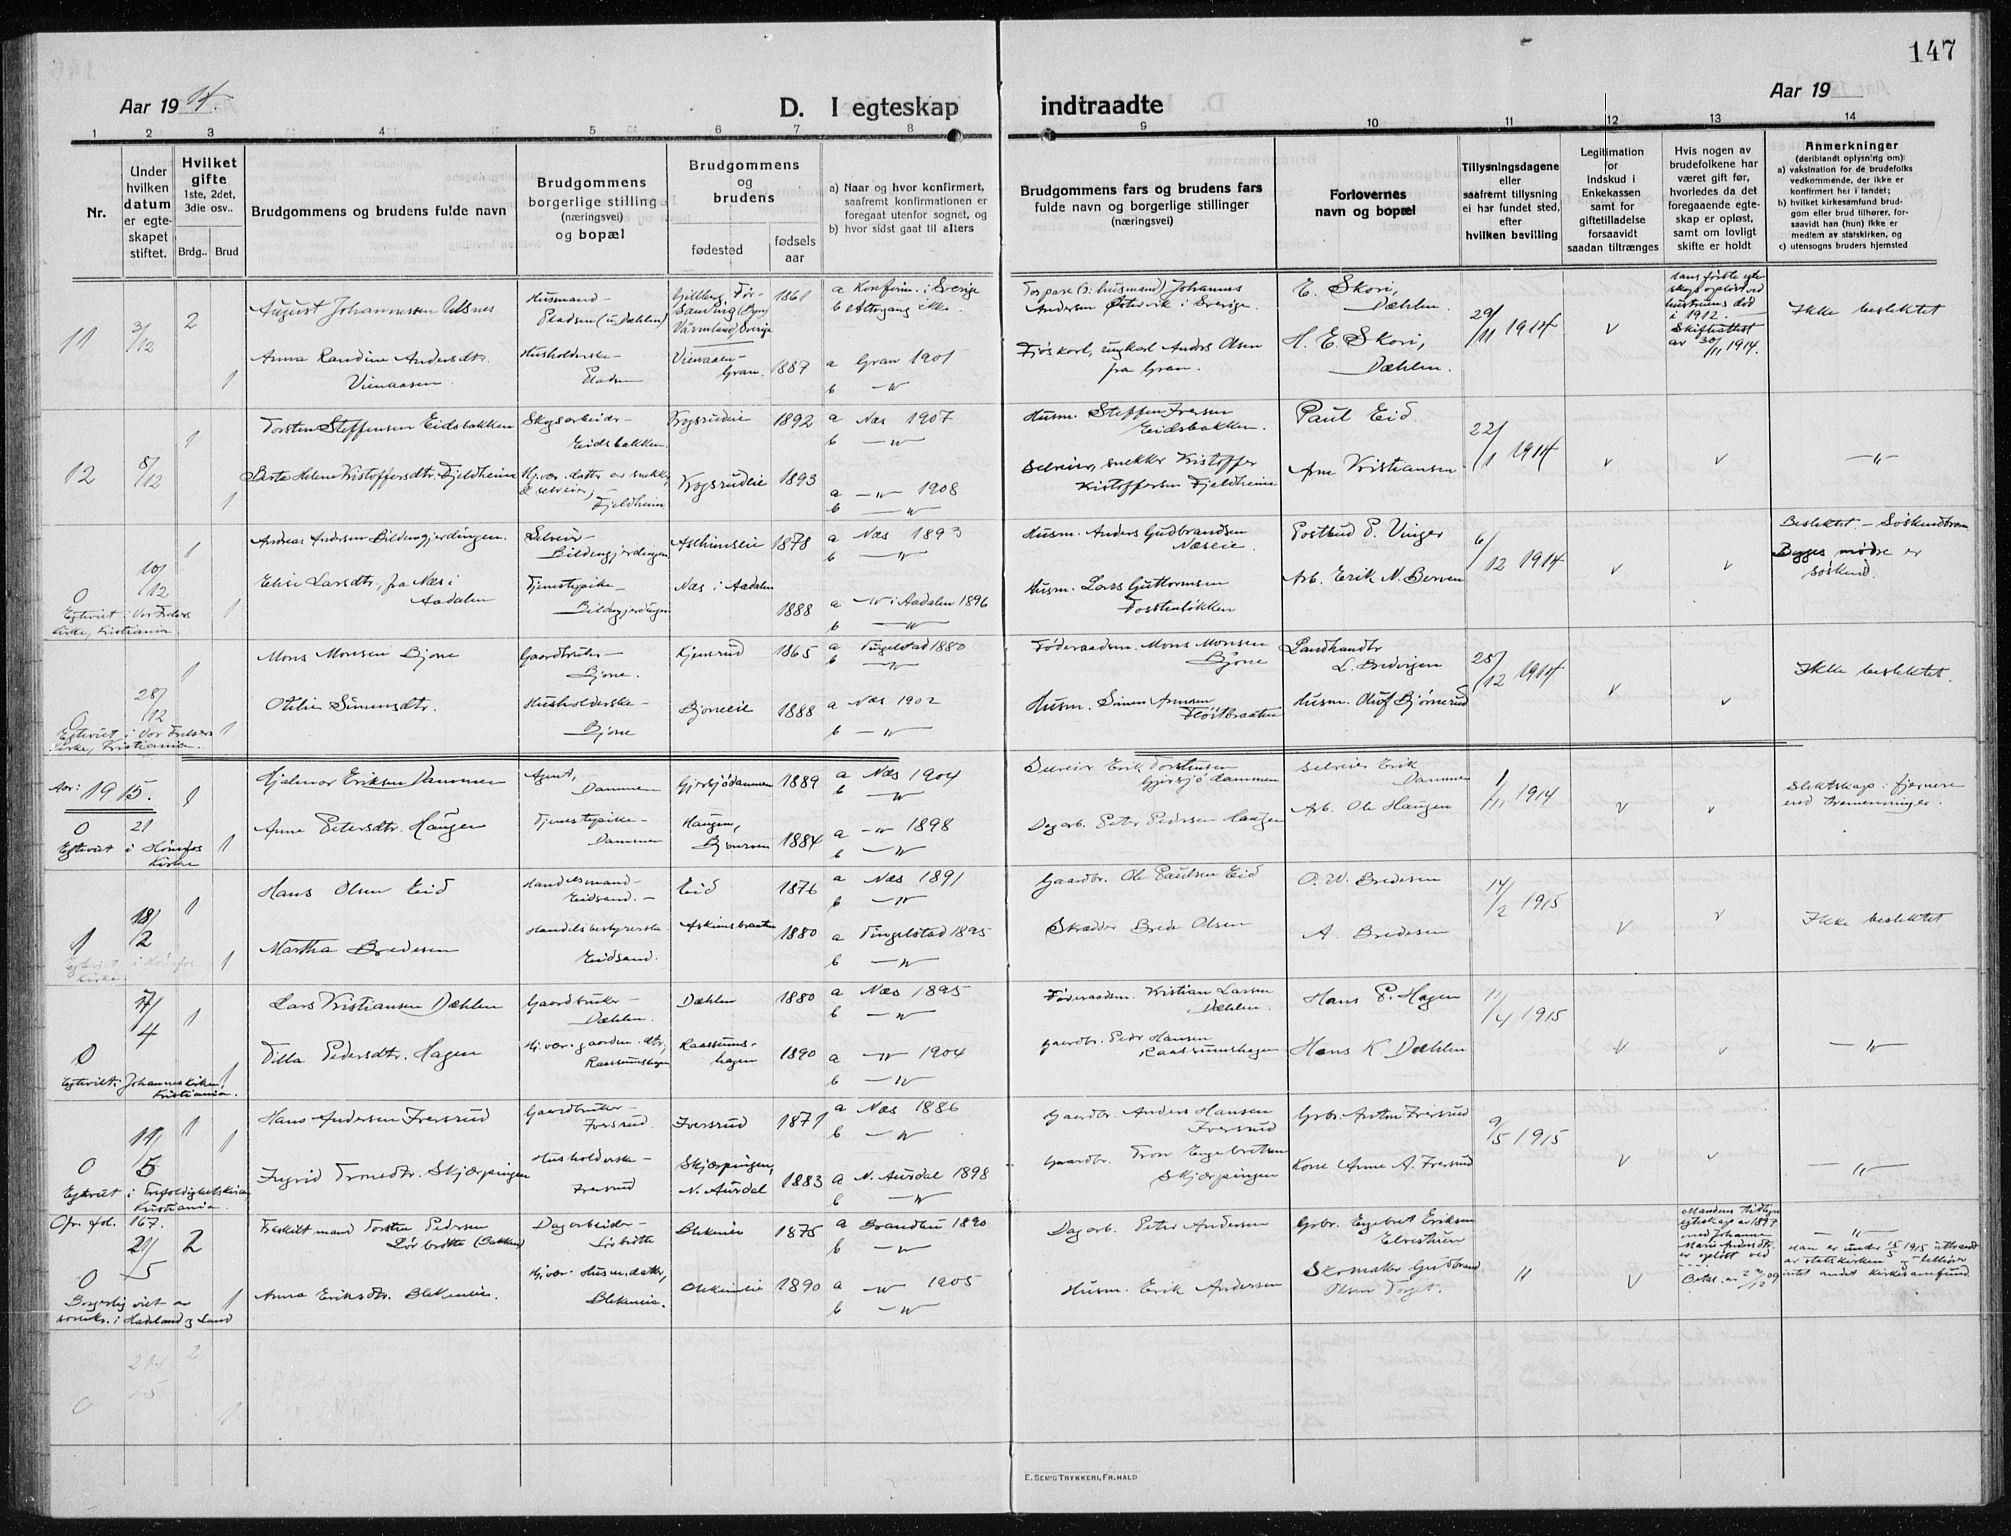 147
Aar 19 14.
D. I egteskap
indtraadte
Aar 19
1 2 3 4 5 6 7 8 9 10 11 12 13 14
Nr.
Under hvilken datum er egteskapet stiftet.
Hvilket gifte 1ste, 2det, 3die osv..
Brdg.. Brud
Brudgommens og brudens fulde navn
Brudgommens borgerlige stilling (næringsvei) og bopæl
Brudgommens og brudens
fødested
fødsels aar
a) Naar og hvor konfirmert, saafremt konfirmationen er foregaat utenfor sognet, og
b) hvor sidst gaat til alters
Brudgommens fars og brudens fars fulde navn og borgerlige stillinger (næringsvei)
Forlovernes navn og bopæl
Tillysningsdagene eller saafremt tillysning ei har fundet sted, efter hvilken bevilling
Legitimation for indskud i Enkekassen samt for giftetilladelse forsaavidt saadan tiltrænges
Hvis nogen av brudefolkene har været gift før, hvorledes da det foregaaende egteskap er opløst, samt om lovligt skifte er holdt
Anmerkninger
(deriblandt oplysning om):
a) vaksination for de brudefolks vedkommende, der ikke er konfirmert her i landet;
b) hvilket kirkesamfund brudgom eller brud tilhører, forsaavidt han (hun) ikke er medlem av statskirken, og
c) utensogns bruders hjemsted
11 3/12 2 August Johannessen Ulsnes Husmand- Pladsen (u. Dæhlen) 1861 a Konfirm. i Sverige
Värmland, Sverige b Altergang ikke.
Torpare (ɔ: husmand) Johannes Andersen Østervik i Sverige. E. Skori, Dæhlen. 29/11 1914 v
hans første egteskap opløst ved hustruens død i 1912. Skifteattest av 30/11 1914.
Ikke beslektet
1 Anna Randine Andersdtr. Vienaasen. Husholderske- Pladsen Vienaasen- Gran. 1887 a Gran 1901
b -"-
Anders Olsen fra Gran. H. E. Skori, Dæhlen.
12 5/12 1 Torsten Steffensen Eidsbakken Skogsarbeider- Eidsbakken. Krogsrudeie 1892 a Næs 1907
b -"-
Husm. Steffen Iversen Eidsbakken. Paul Eid. 22/1 1914 v v -"-
1 Berta Helene Kristoffersdtr. Fjeldheim Hj.vær. datter av snekker & selveier, Fjeldheim Krogsrudeie 1893 a -"- 1908
b -"-
Selveier, snekker Kristoffer Kristoffersen Fjeldheim Arne Kristiansen
0 10/12 1 Andreas Andersen Bildengjerdingen. Selveier- Bildengjerdingen Askimseie 1878 a Næs 1893
b -"-
Husm. Anders Gudbrandsen Næseie. Postbud P. Vinger 6/12 1914 v v
Beslektet - Søskendbarn Begges mødre er søskend.
1 Elise Larsdtr. fra Næs i Aadalen Tjenestepike- Bildengjerdingen Næs i Aadalen 1888 a -"- i Aadalen 1896
b -"-
Husm. Lars Guttormsen Arb. Erik N. Berven
Egteviet i Vor Frelsers Kirke, Kristiania.
0 28/12 1 Mons Monsen Bjone Gaardbruker- Bjone. Kjensrud 1865 a Tingelstad 1880
b -"-
Føderaadsm. Mons Monsen Bjone Landhandler L. Bredvigen 25/12 1914 v v Ikke beslektet.
1 Otilie Simensdtr. Husholderske- Bjone Bjoneeie 1888 a Næs 1902
b -"-
Husm. Simen Arnesen Fløitbraaten Husm. Oluf Bjørnerud
Egteviet i Vor Frelsers Kirke, Kristiania.
Aar: 1915.
1 Hjalmar Eriksen Dammen Agent, Dammen Gjersjødammen 1889 a Næs 1904
b -"-
Selveier Erik Torstensen Gjersjødammen Selveier Erik Dammen 1/11 1914 v v
Slektskap: fjernere end tremenninger.
0 21 1 Anne Petersdtr. Haugen Tjenestepike- Dammen Haugen, 1884 a -"- 1898
b -"-
Dagarb. Peter Pedersen Haugen Arb. Ole Haugen
Egteviet i Hønefos Kirke
1 18/2 1 Hans Olsen Eid Handelsmand- Eidsand. Eid 1876 a Næs 1891
b -"-
Gaardbr. Ole Paulsen Eid O. W. Bredesen 14/2 1915 v v Ikke beslektet
1 Martha Bredesen Handelsbestyrerske Eidsand. Askimsbraaten 1880 a Tingelstad 1895
b -"-
Skrædder Brede Olsen A. Bredesen
Egteviet i Hønefos Kirke
0 17/4 1 Lars Kristiansen Dæhlen Gaardbruker- Dæhlen. Dæhlen 1880 a Næs 1895
b -"-
Føderaadsm. Kristian Larsen Dæhlen. Hans P. Hagen 11/4 1915 v v -"-
1 Tilla Pedersdtr. Hagen Hj.vær. gaardm. dtr, Raassumshagen Raassumshagen 1890 a -"- 1904
b -"-
Gaardbr. Peder Hansen Raassumshagen Hans K. Dæhlen
Egteviet i Johanneskirken, Kristiania.
0 11/5 1 1 Hans Andersen Iversrud Gaardbruker Iversrud. Iversrud 1871 a Næs 1886
b -"-
Gaardbr. Anders Hansen Iversrud Grbr. Anton Iversrud 9/5 1915 v v -"-
Ingrid Tronsdtr. Skjærpingen Husholderske- Iversrud Skjærpingen, N. Aurdal 1883 a N. Aurdal 1898
b -"-
Gaardbr. Tron Engebretsen Skjærpingen Kone Anne A. Iversrud
Egteviet i Trefoldighetskirken Kristiania.
Cfr. fol. 167.
0 21/5 2 Fraskilt mand Torsten Pedersen Sørbrøtte (Bakken) Dagarbeider- Sørbrøtte Blekeneie 1875 a Brandbu 1890
b -"-
Dagarb. Peter Andersen Grbr. Engebret Eriksen Elvestuen " v
Mandens tidligere egteskap av 1897 med Johanne Marie Andersdtr. er opløst ved
-"- Han er under 15/5 1915 uttraadt av statskirken og tilhører intet andet kirkesamfund
1 Anna Eriksdtr. Blekeneie. Hj.vær. Husm. datter, Blekeneie. Blekeneie 1890 a -"- 1905
b -"-
Husm. Erik Andersen Skomaker Gudbrand Olsen Torget.
Borgerlig viet av sorenskr. i Hadeland og Land
E. SEM'S TRYKKERI, FR.HALD